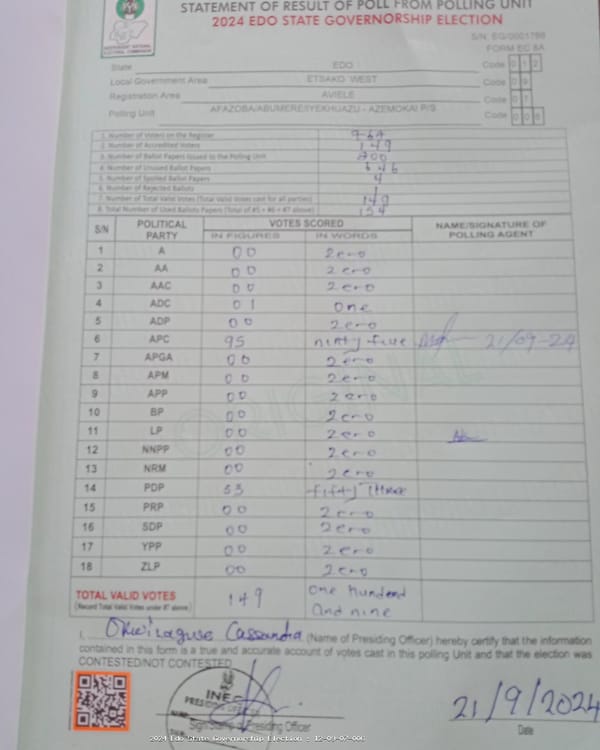 STATEMENT OF RESULT OF POLL FROM POLLING UNIT
2024 EDO STATE GOVERNORSHIP ELECTION
INEC
INDEPENDENT NATIONAL ELECTORAL COMMISSION
FORM EC 8A
State EDO Code 0 1 2
Local Government Area ETSAKO WEST Code 0 9
Registration Area AVIELE Code 0 7
Polling Unit AFAZOBA/ABUMERESYEKHUAZU - AZEMOKAI P/S Code 0 0 6
1. Number of Voters on the Register
2. Number of Accredited Voters 149
3. Number of Ballot Papers Issued to the Polling Unit
4. Number of Unused Ballot Papers
5. Number of Spoiled Ballot Papers 4
6. Number of Rejected Ballots 1
7. Number of Total Valid Votes (Total Valid Votes cast for all parties) 149
8. Total Number of Used Ballots Papers (Total of #5 + #6 + #7 above) 154
S/N POLITICAL PARTY VOTES SCORED NAME/SIGNATURE OF POLLING AGENT
IN FIGURES IN WORDS
1 A 00 zero
2 AA 00 zero
3 AAC 00 zero
4 ADC 01 one
5 ADP 00 zero
6 APC 95 ninty five 21/09-24
7 APGA 00 zero
8 APM 00 zero
9 APP 00 zero
10 BP 00 zero
11 LP 00 zero
12 NNPP 00 zero
13 NRM 00 zero
14 PDP 53 fifty three
15 PRP 00 zero
16 SDP 00 zero
17 YPP 00 zero
18 ZLP 00 zero
ORIGINAL
TOTAL VALID VOTES 149 one hundend
(Record Total Valid Votes under #7 above) and nine
I, Cassandra (Name of Presiding Officer) hereby certify that the information
contained in this form is a true and accurate account of votes cast in this polling Unit and that the election was
CONTESTED/NOT CONTESTED
INEC
Signature of Presiding Officer
21/9/2024
Date
2024 Edo State Governorship Election : 12-09-07-006